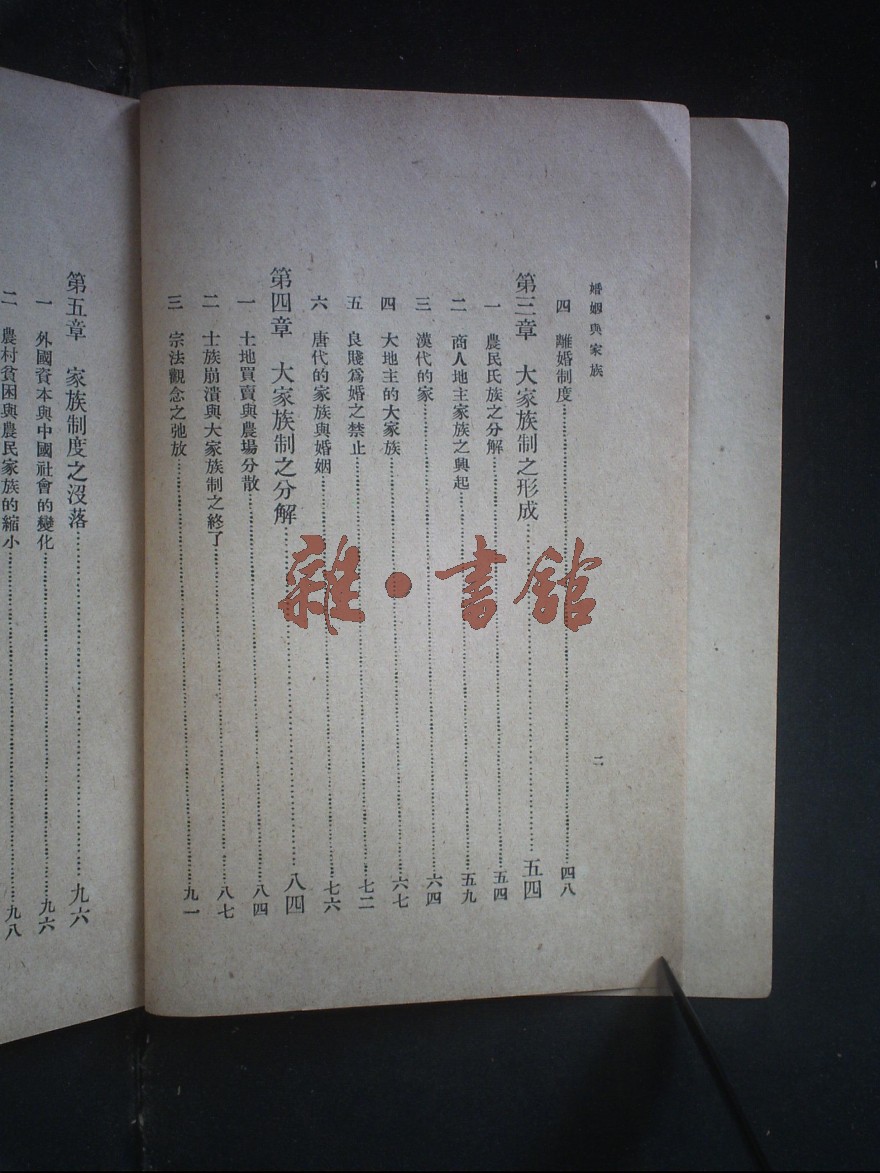 婚姻與家族
二
四 離婚制度……四八
第三章 大家族制之形成……五四
一 農民氏族之分解……五四
二 商人地主家族之興起……五九
三 漢代的家……六四
四 大地主的大家族……六七
五 良賤爲婚之禁止……七二
六 唐代的家族與婚姻……七六
第四章 大家族制之分解……八四
一 土地買賣與農場分散……八四
二 士族崩潰與大家族制之終了……八七
三 宗法觀念之弛放……九一
第五章 家族制度之沒落……九六
一 外國資本與中國社會的變化……九六
二 農村貧困與農民家族的縮小……九八
雜·書館